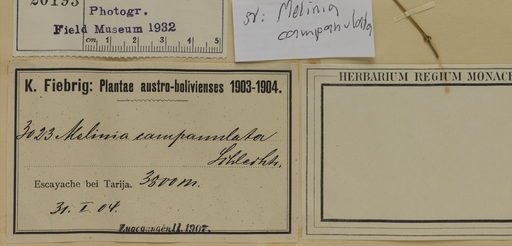 20193
Photogr.
Field Museum 1932
cm. 1 2 3 4 5
sr: Melinia
campanulata
K. Fiebrig: Plantae austro-bolivienses 1903-1904.
3023 Melinia campanulata
Schlechtr.
Escayache bei Tarija. 3500 m.
31. I. 04.
Zugegangen II. 1907.
HERBARIUM REGIUM MONACE